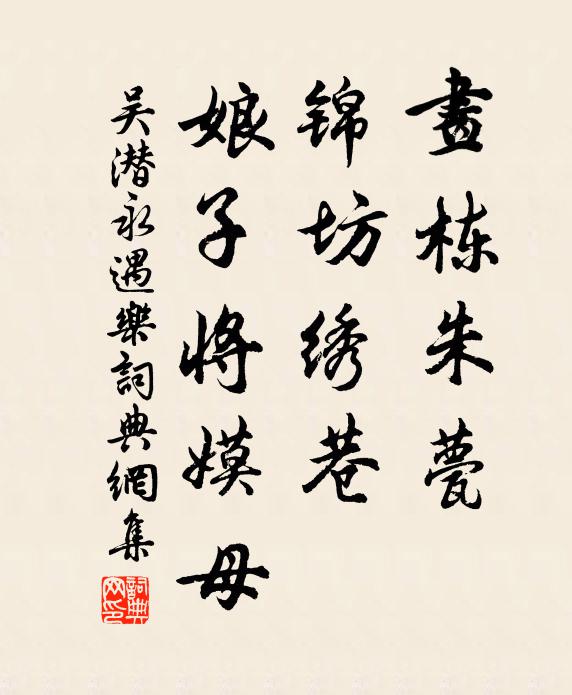 畫栋朱甍
锦坊绣巷
娘子将嫫母
吴潜永遇樂詞典網集
詞典网印